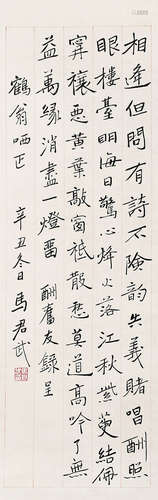 相逢但問有詩不險韵共義賭唱酬照
眼樓臺明海日驚心烽火落江秋紫萸結佩
寧禳惡黄葉敲窗祗散愁莫道高吟了無
益萬緣消盡一燈留 酬奮友録呈
鶴翁哂正 辛丑冬日馬君武